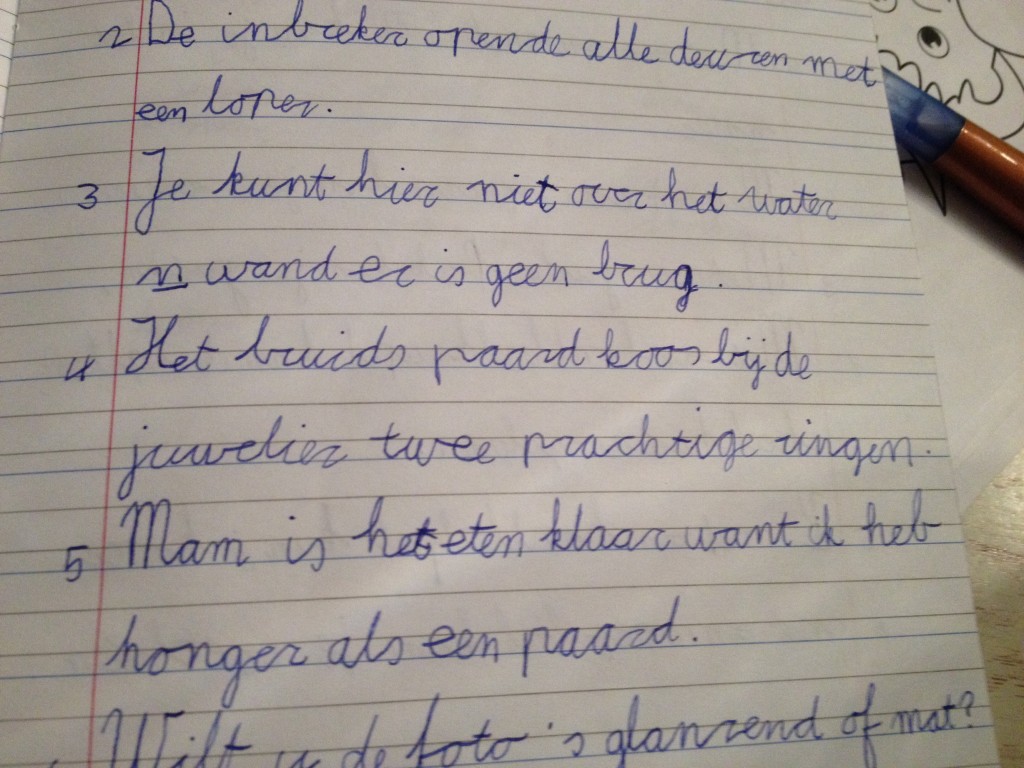 2 De inbreker opende alle deuren met
een loper.
3 Je kunt hier niet over het water
n wand er is geen brug.
4 Het bruids paard koos bij de
juwelier twee prachtige ringen.
5 Mam is het eten klaar want ik heb
honger als een paard.
Wilt u de foto's glanzend of mat?